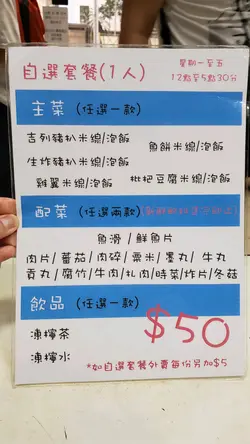 自選套餐(1人)
星期一至五
12點至5點30分
主菜 (任選一款)
吉列豬扒米線/泡飯
魚餅米線/泡飯
生炸豬扒米線/泡飯
雞翼米線/泡飯
枇杷豆腐米線/泡飯
配菜 (任選兩款)
魚滑 / 鮮魚片
肉片/ 蕃茄/ 肉碎/ 粟米/ 墨丸/ 牛丸
貢丸/ 腐竹/ 牛肉/ 札肉/ 時菜/ 炸片/ 冬菇
飲品 (任選一款)
凍檸茶
凍檸水
$50
*如自選套餐外賣每份另加$5